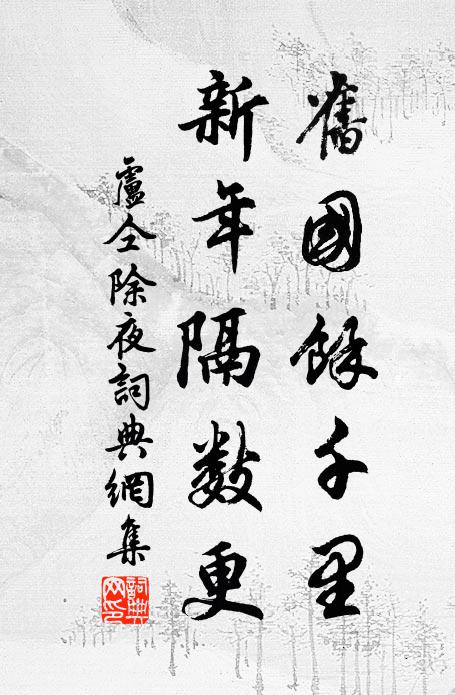 舊國餘千里
新年隔數更
盧仝除夜詞典網集
詞典网印